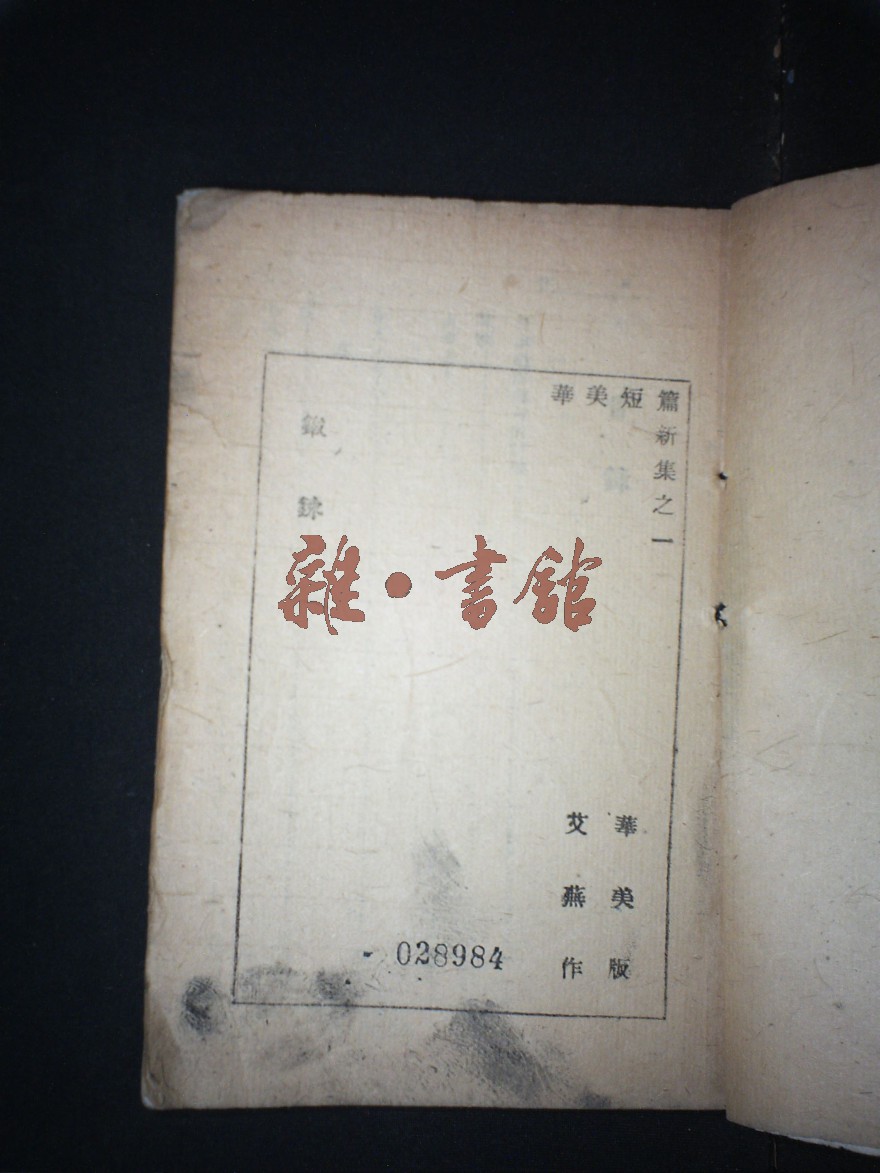 華美短篇新集之一
華美版
艾蕪作
鍛鍊
雜·書館
028984